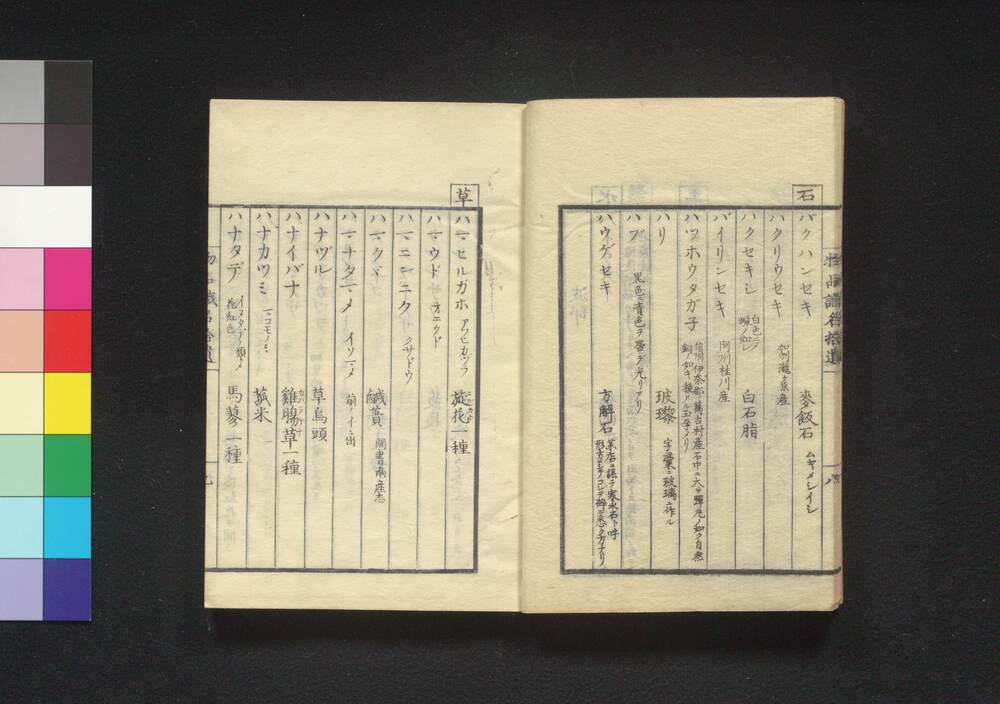 石
バクハンセキ 麥飯石 ムギメシイシ
ハクリウセキ 加州瀧ヶ原産
ハクセキシ 白色ニテ蝋ノ如シ 白石脂
バイリンセキ 阿州桂川産
ハツホウタガ子 信州伊奈郡 萬古村産石中ニ大サ彈丸ノ如ク自然
銅ノ如キ
ハリ 玻瓈 字彙ニ玻璃ニ作ル
ハブ 黒色ニ青色ヲ帯テ光リアリ
ハウゲセキ 方解石 薬店ニ誤テ寒水石ト呼
物品譜名拾遺
八
草
ハマヒルガホ アフヒカヅラ 旋花一種
ハマウド オニウド
ハマニンニク クサドウ
ハマクマ 鹹蕡 閩書南産志
ハマナタマメ イソマメ 前ノイニ出
ハナヅル 草烏頭
ハナイバナ 雞腸草一種
ハナカツミ マコモノミ 菰米
ハナタデ イヌタデノ類ニメ花紅色 馬蓼一種
九